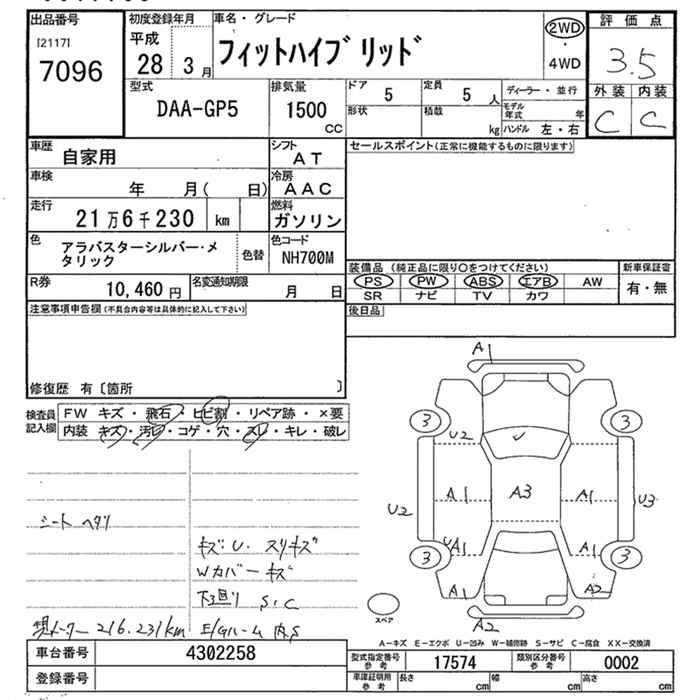 出品番号
[2117]
7096
初度登録年月
平成
28 3月
車名・グレード
フィットハイブリッド
2WD
・
4WD
評価点
3.5
外装 内装
C C
型式
DAA-GP5
排気量
1500
CC
ドア
5
定員
5 人
形状
積載
kg
ディーラー・並行
モデル年式 年
ハンドル 左・右
車歴
自家用
シフト
AT
車検
年 月( 日)
冷房
AAC
走行
21万6千230 km
燃料
ガソリン
色
アラバスターシルバー・メ
タリック
色替
色コード
NH700M
R券
10,460 円
名変通知期限
月 日
セールスポイント(正常に機能するものに限ります)
装備品 (純正品に限り○をつけてください)
PS PW ABS エアB AW
SR ナビ TV カワ
新車保証書
有・無
後日品
注意事項申告欄(不具合内容等は具体的に記入して下さい)
修復歴 有〔箇所 〕
検査員
記入欄
FW キズ・飛石・ヒビ割・リペア跡・×要
内装 キズ・汚レ・コゲ・穴・スレ・キレ・破レ
シート ヘタリ
キズ U. スリキズ
Wカバーキズ
下廻り S.C
現メーター 216.231km E/Gルーム 内.S
A1
3
3
U2
A1
A3
A1
U2
U3
UA1
A1
3
3
A1
A2
A2
スペア
A-キズ E-エクボ U-凹み W-補修跡 S-サビ C-腐食 XX-交換済
車台番号
4302258
登録番号
型式指定番号
参考
17574
類別区分番号
参考
0002
車庫証明用
参考
長さ cm
幅 cm
高さ cm